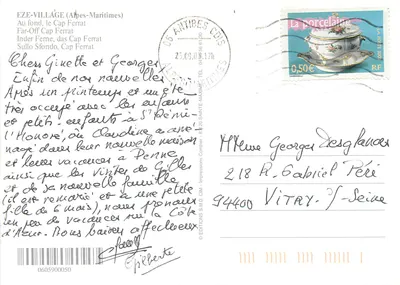 EZE-VILLAGE (Alpes-Maritimes)
Au fond, le Cap Ferrat
Far-Off Cap Ferrat
Inder Ferne, das Cap Ferrat
Sullo Sfondo, Cap Ferrat
Chers Ginette et Georges
Enfin de nos nouvelles
Après un printemps et un été
très occupé avec les enfants
et petits-enfants à St Rémi
l'Honoré, où Claudine a aménagé
dans leur nouvelle maison
et leurs vacances à Penne
ainsi que les visites de Gilles
et de sa nouvelle famille
(il est remarié et a une petite
fille de 6 mois), nous prenons
un peu de vacances sur la Côte
d'Azur. Bons baisers affectueux
Gilberte
0605900050
06 ANTIBES CDIS
La porcelaine
0,50€ RF
Mr Mme Georges Desglandes
218 R. Gabriel Péri
94400 VITRY S/-Seine